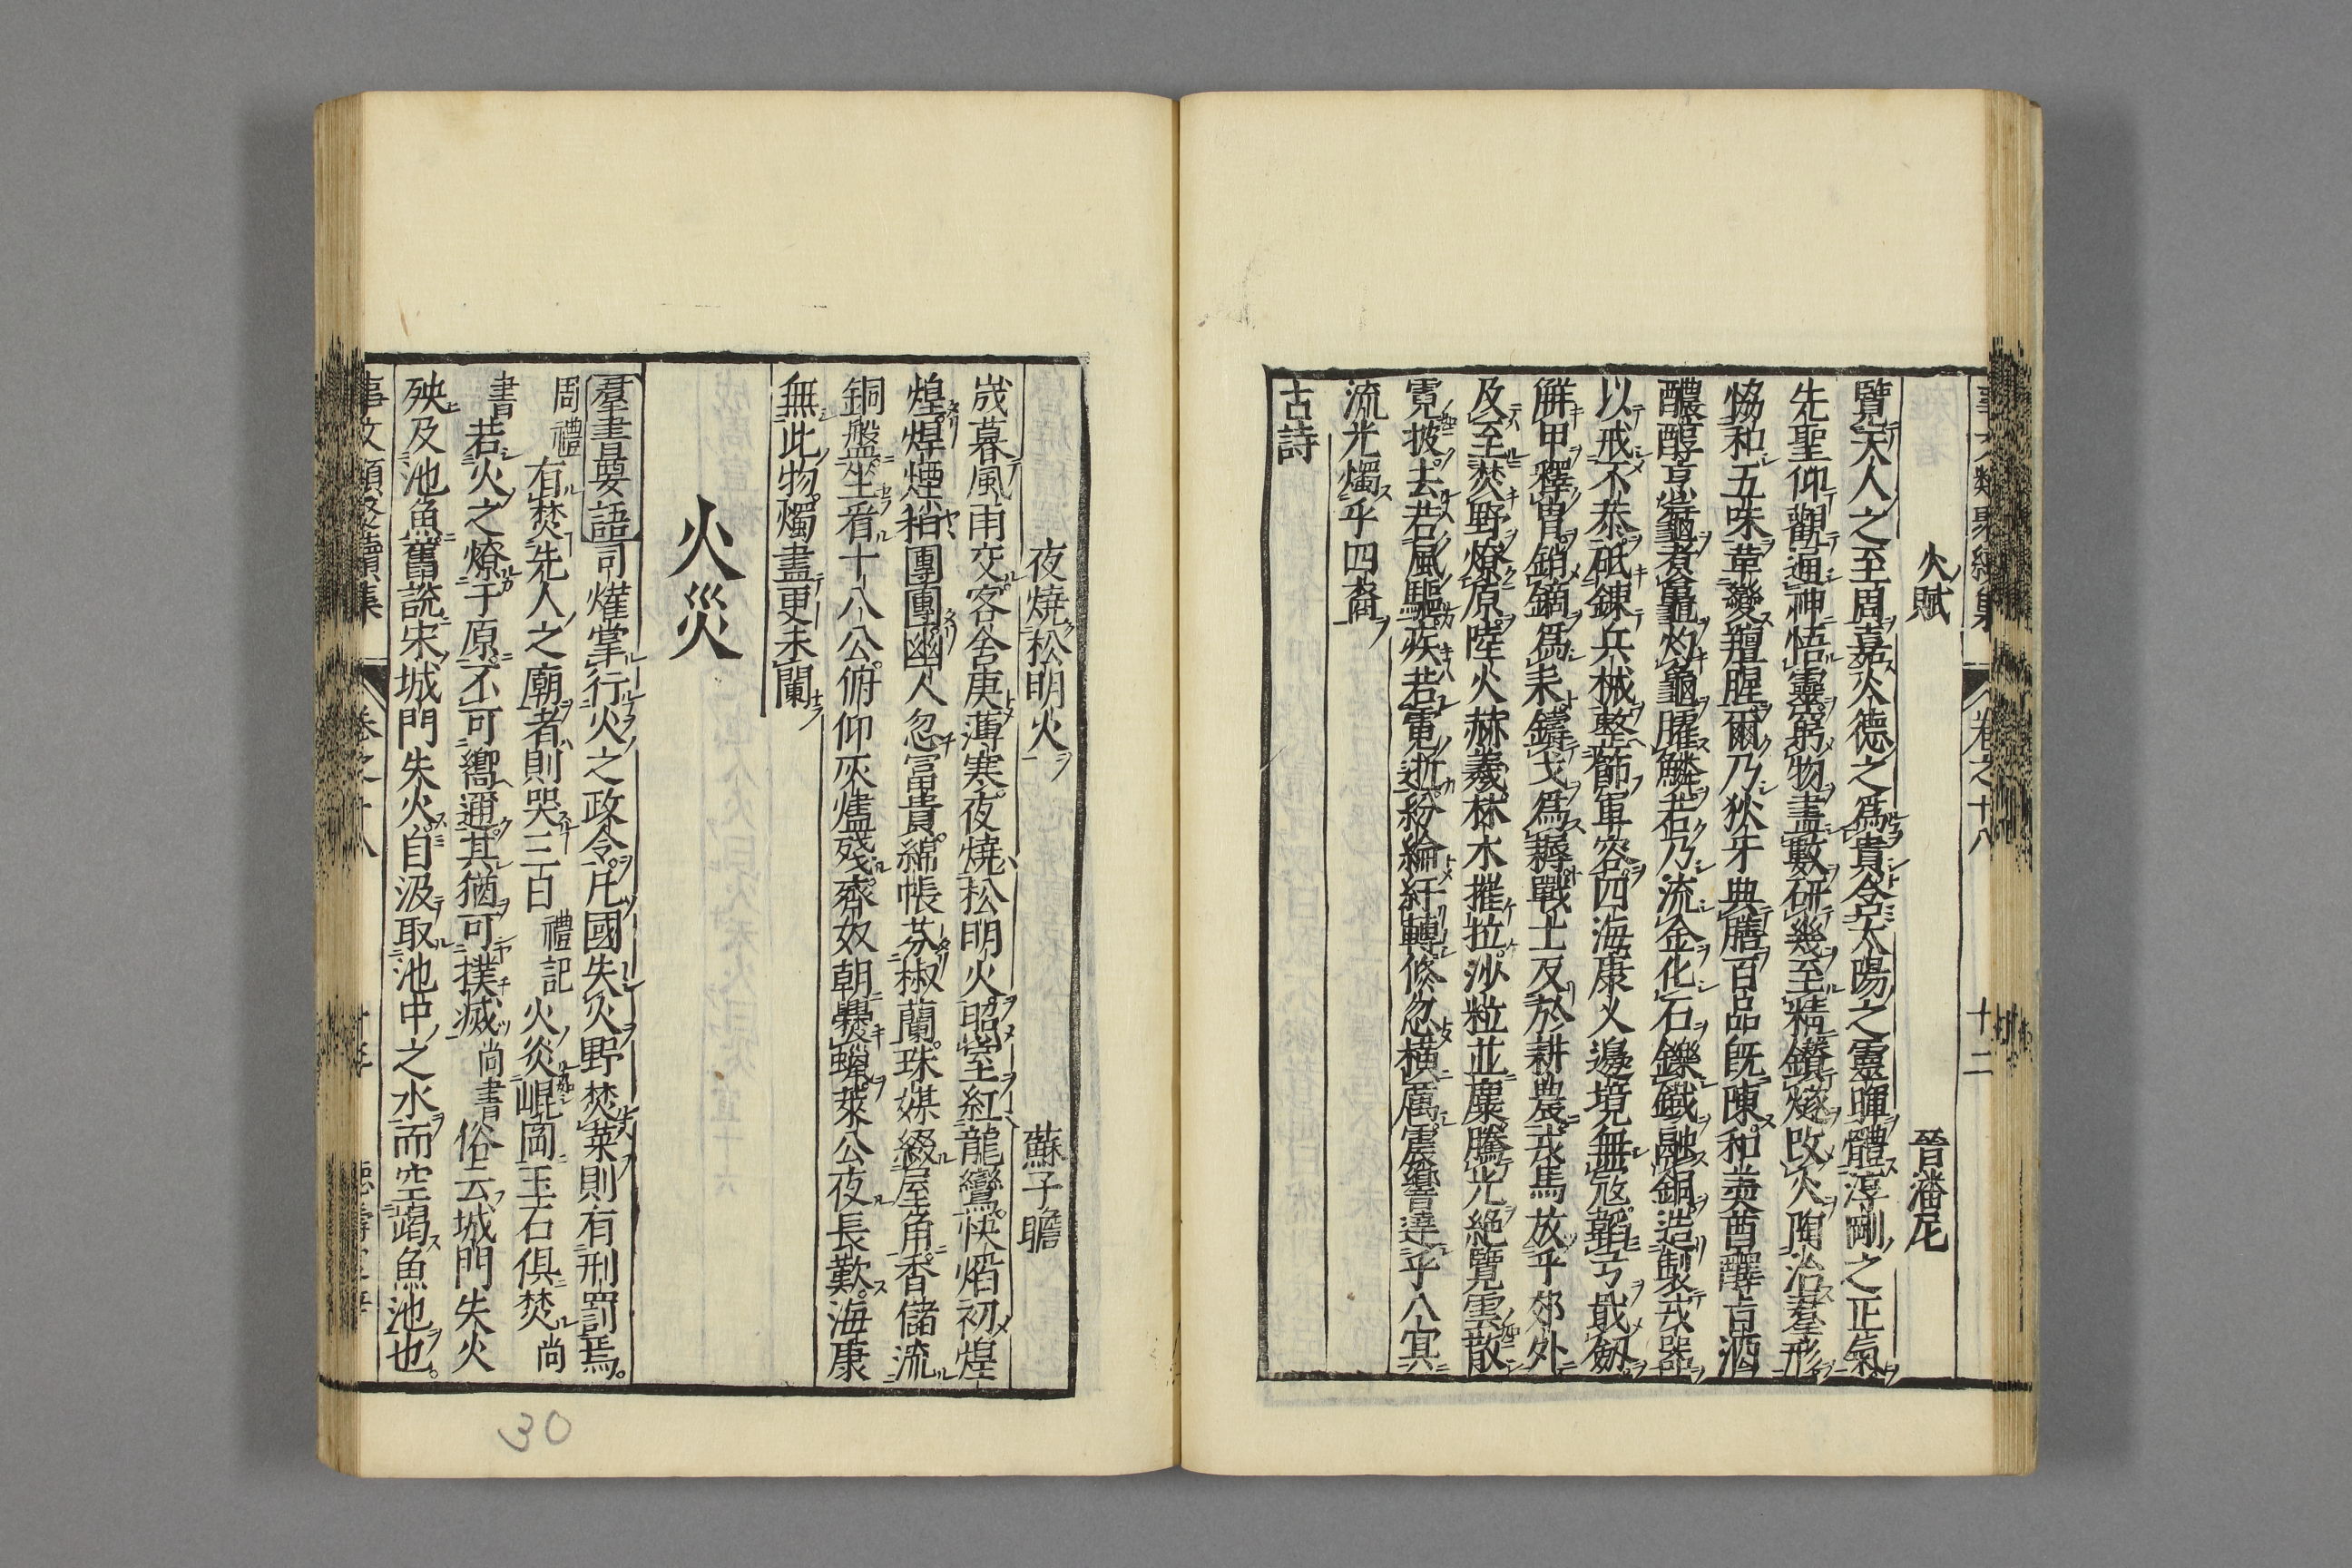 火賦 晉潘尼
覽天人之至周嘉火德之爲貴含太陽之靈暉體淳剛之正氣
先聖仰觀通神悟靈窮物盡數研幾至精鑽燧改火陶冶羣形
恊和五味革變羶腥爾乃狄牙典膳百品旣陳和羹酋醳旨酒
醲醇烹黿煮鼉灼龜臛鱗若乃流金化石鑠鐵融銅造製戎器
以戒不恭砥鍊兵械整飾軍容四海康乂邊境無冦韜弓戢劒
觧甲釋冑銷鏑爲耒鑄戈爲耨戰士反於耕農戎馬放乎郊外
及至焚野燎原陸火赫羲林木摧拉沙粒並麋騰光絕覽雲散
霓披去若風驅疾若電逝紛綸紆轉倏忽横厲震響達乎八冥
流光燭乎四裔
古詩
夜燒松明火 蘇子瞻
嵗暮風雨交客舍庚薄寒夜燒松明火照室紅龍鸞快焰初煌
煌煌煙稍團團幽人忽冨貴綿帳芬椒蘭珠媒綴屋角香儲流
銅盤坐看十八公俯仰灰燼殘齊奴朝爨蠟萊公夜長歎海康
無此物燭盡更未闌
火災
羣書要語 司爟掌行火之政令凡國失火野焚萊則有刑罰焉
周禮 有焚先人之廟者則哭三日 禮記 火炎崐岡玉石俱焚 尚
書 若火之燎于原不可嚮邇其猶可撲滅 尚書 俗云城門失火
殃及池魚舊說宋城門失火自汲取池中之水而空竭魚池也
事文類聚續集 卷之十八
30